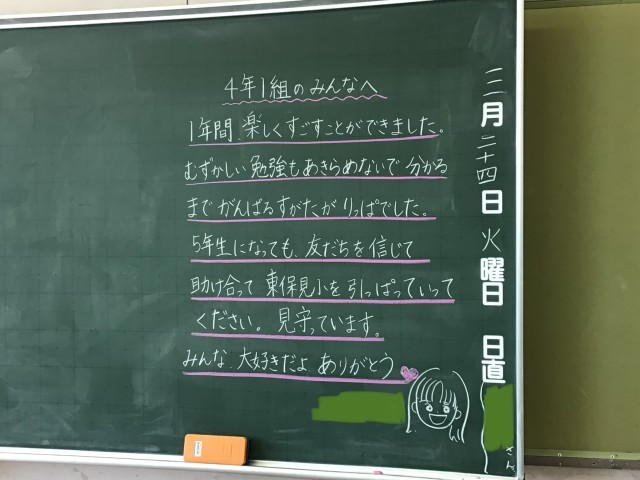 4年1組のみんなへ
1年間 楽しくすごすことができました。
むずかしい勉強もあきらめないで 分かる
まで がんばるすがたが りっぱでした。
5年生になっても、友だちを信じて
助け合って 東保見小を引っぱっていって
ください。 見守っています。
みんな 大好きだよ ありがとう
三月二十四日 火曜日 日直
さん